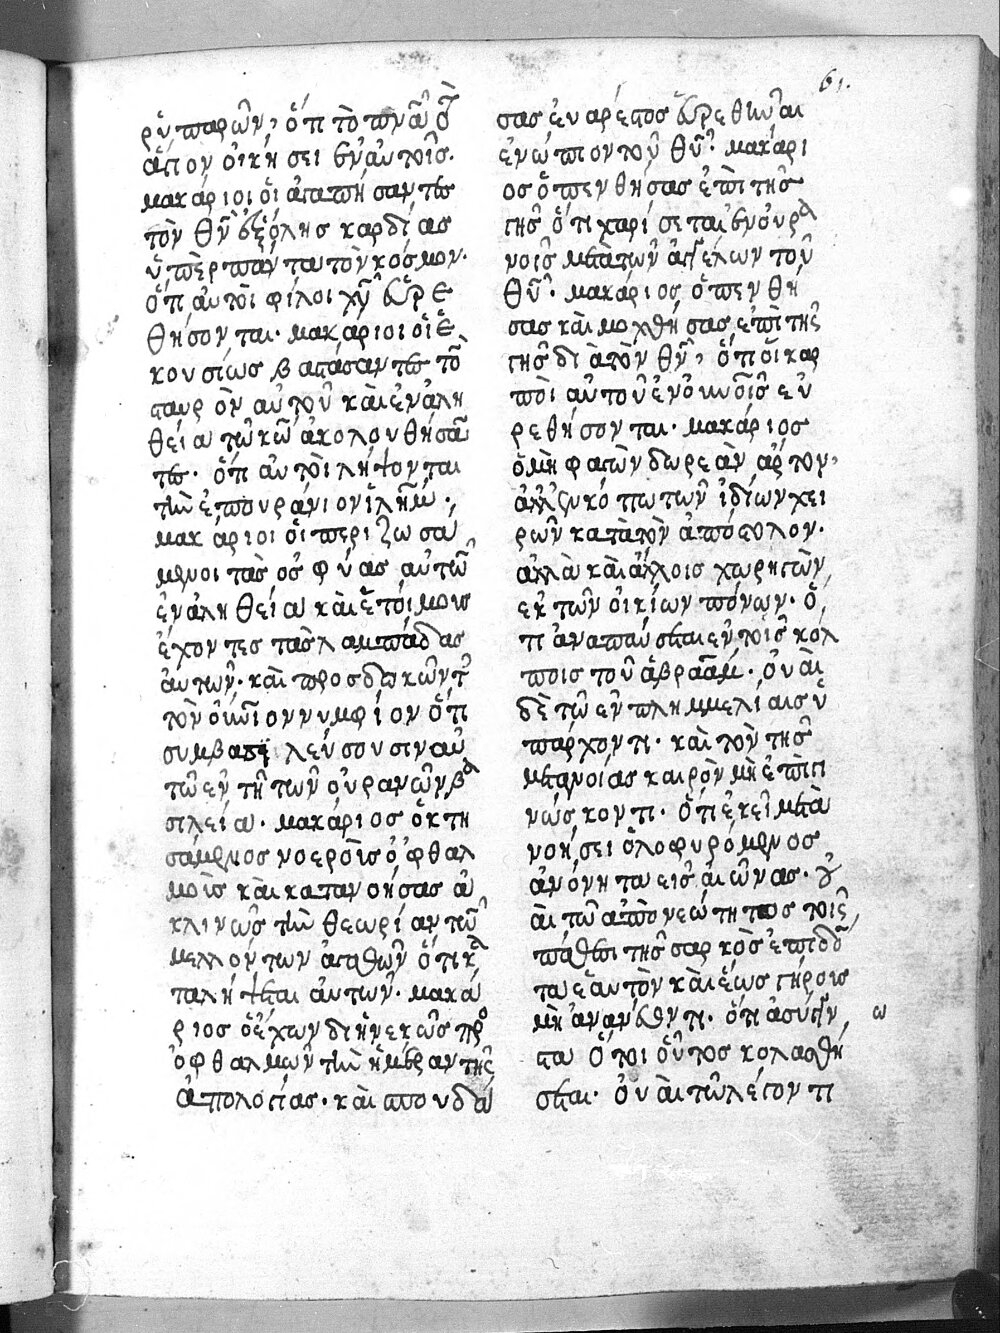 61.
ρὺ παρῶν, ὅτι τὸ πνᾶ τὸ
ἅγιον οἰκήσει ἐν αὐτοῖς.
μακάριοι οἱ ἀγαπήσαντες
τὸν θν̄ ἐξ ὅλης καρδίας
ὑπὲρ πάντα τὸν κόσμον.
ὅτι αὐτοὶ φίλοι χῦ εὑρε
θήσονται. μακάριοι οἱ ἑ
κουσίως βαστάσαντες τὸν
σταυρὸν αὐτοῦ καὶ ἐν ἀλη
θεία τῶ κῶ ἀκολουθήσαν
τες. ὅτι αὐτοὶ λήψονται
τὴν ἐπουράνιον ἱλῆμ.
μακάριοι οἱ περιζωσά
μενοι τὰς ὀσφύας αὐτῶν
ἐν ἀληθεία καὶ ἑτοίμους
ἔχοντες τὰς λαμπάδας
αὐτῶν. καὶ προσδοκῶντες
τὸν οὐνιον νυμφίον ὅτι
συμβασιλεύσουσιν αὐ
τῶ ἐν τῆ τῶν οὐρανῶν βα
σιλεία. μακάριος ὁ κτη
σάμενος νοεροῖς ὀφθαλ
μοῖς καὶ κατανοήσας ἀ
κλινῶς τὴν θεωρίαν τῶν
μελλόντων ἀγαθῶν ὅτι κα
ταλήψεται αὐτῶν. μακά
ριος ὁ ἔχων διηνεκῶς πρὸ
ὀφθαλμῶν τὴν ἡμέραν τῆς
ἀπολογίας. καὶ σπουδά
σας ἐνάρετος εὑρεθῆναι
ἐνώπιον τοῦ θῦ. μακάρι
ος ὁ πενθήσας ἐπὶ τῆς
γῆς ὅτι χαρίσεται ἐν οὐρα
νοῖς μετὰ τῶν ἀγγέλων τοῦ
θῦ. μακάριος ὁ πενθή
σας καὶ μοχθήσας ἐπὶ τῆς
γῆς διὰ τὸν θν̄, ὅτι οἱ καρ
ποὶ αὐτοῦ ἐν οὐνοῖς εὑ
ρεθήσονται. μακάριος
ὁ μὴ φαγὼν δωρεὰν ἄρτον,
ἀλλ' ἐκ κόπω τῶν ἰδίων χει
ρῶν κατὰ τὸν ἀπόστολον.
ἀλλὰ καὶ ἄλλοις χωρηγῶν
ἐκ τῶν οἰκίων πόνων. ὅ
τι ἀναπαύσεται ἐν τοῖς κόλ
ποις τοῦ ἀβραάμ. οὐαὶ
δὲ τῶ ἐν πλημμελίαις ὑ
πάρχοντι. καὶ τὸν τῆς
μετανοίας καιρὸν μὴ ἐπιγι
νώσκοντι. ὅτι ἐκεῖ μετα
νοήσει ὀλοφυρόμενος
ἀνόνητα εἰς αἰῶνας. οὐ
αὶ τῶ ἀπὸ νεώτητος τοῖς
πάθεσι τῆς σαρκὸς ἐπιδόν
τα ἑαυτὸν καὶ ἕως γήρους
μὴ ἀνανεύοντι. ὅτι ἀσύγγν
ω
στα ὁ τοιοῦτος κολασθή
σεται. οὐαὶ τῶ λέγοντι